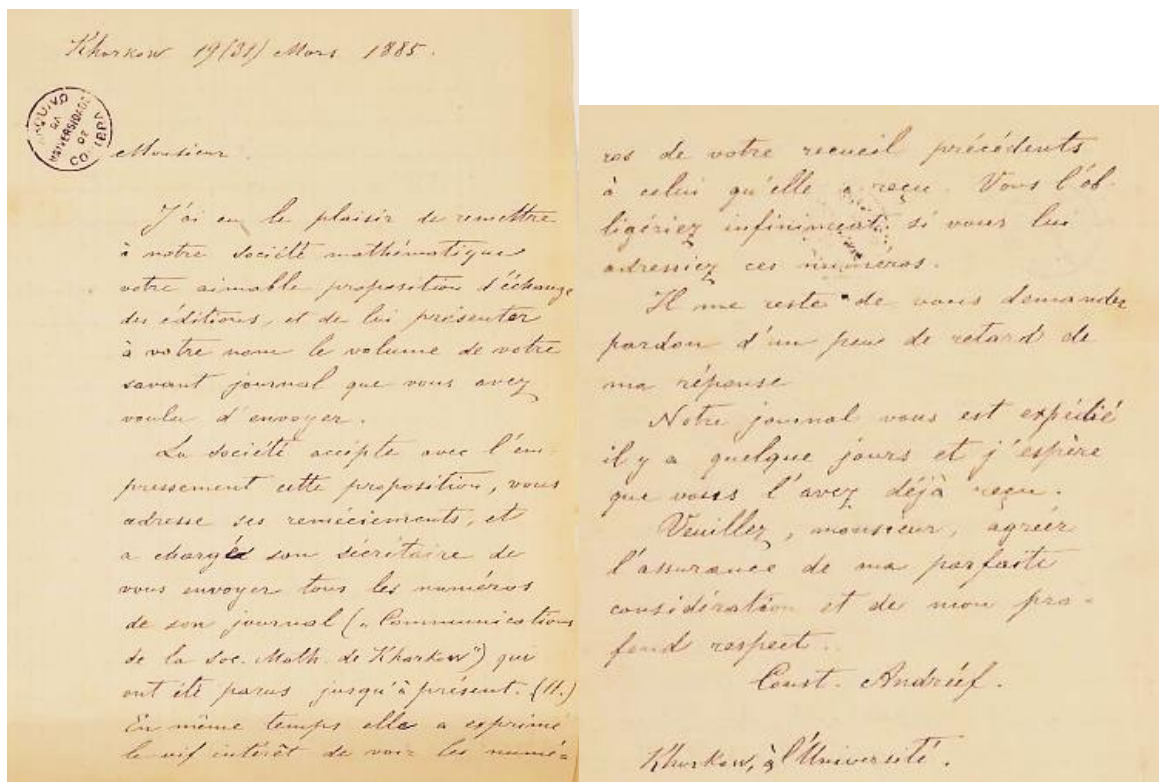 Kharkow 19(31) Mars 1885.
ARQUIVO DA UNIVERSIDADE DE COIMBRA
Monsieur.
J'ai eu le plaisir de remettre
à notre société mathématique
votre aimable proposition d'échange
des éditions, et de lui présenter
à votre nom le volume de votre
savant journal que vous avez
voulu d'envoyer.
La société accipte avec l'em-
pressement cette proposition, vous
adresse ses remérciements, et
a chargé son sécrétaire de
vous envoyer tous les numéros
de son journal („Communications
de la Soc. Math. de Kharkow") qui
ont été parus jusqu'à présent. (11.)
En même temps elle a exprimé
le vif intérêt de voir les numé-
ros de votre recueil précédents
à celui qu'elle a reçu. Vous l'ob-
ligériez infiniment si vous lui
adressiez ces numéros.
Il me reste de vous demander
pardon d'un peu de retard de
ma réponse
Notre journal vous est expédié
il y a quelque jours et j'espère
que vous l'avez déjà reçu.
Veuillez, monsieur, agréer
l'assurance de ma parfaite
considération et de mon pro-
fond respect.
Const. Andréef.
Kharkow, à l'Université.